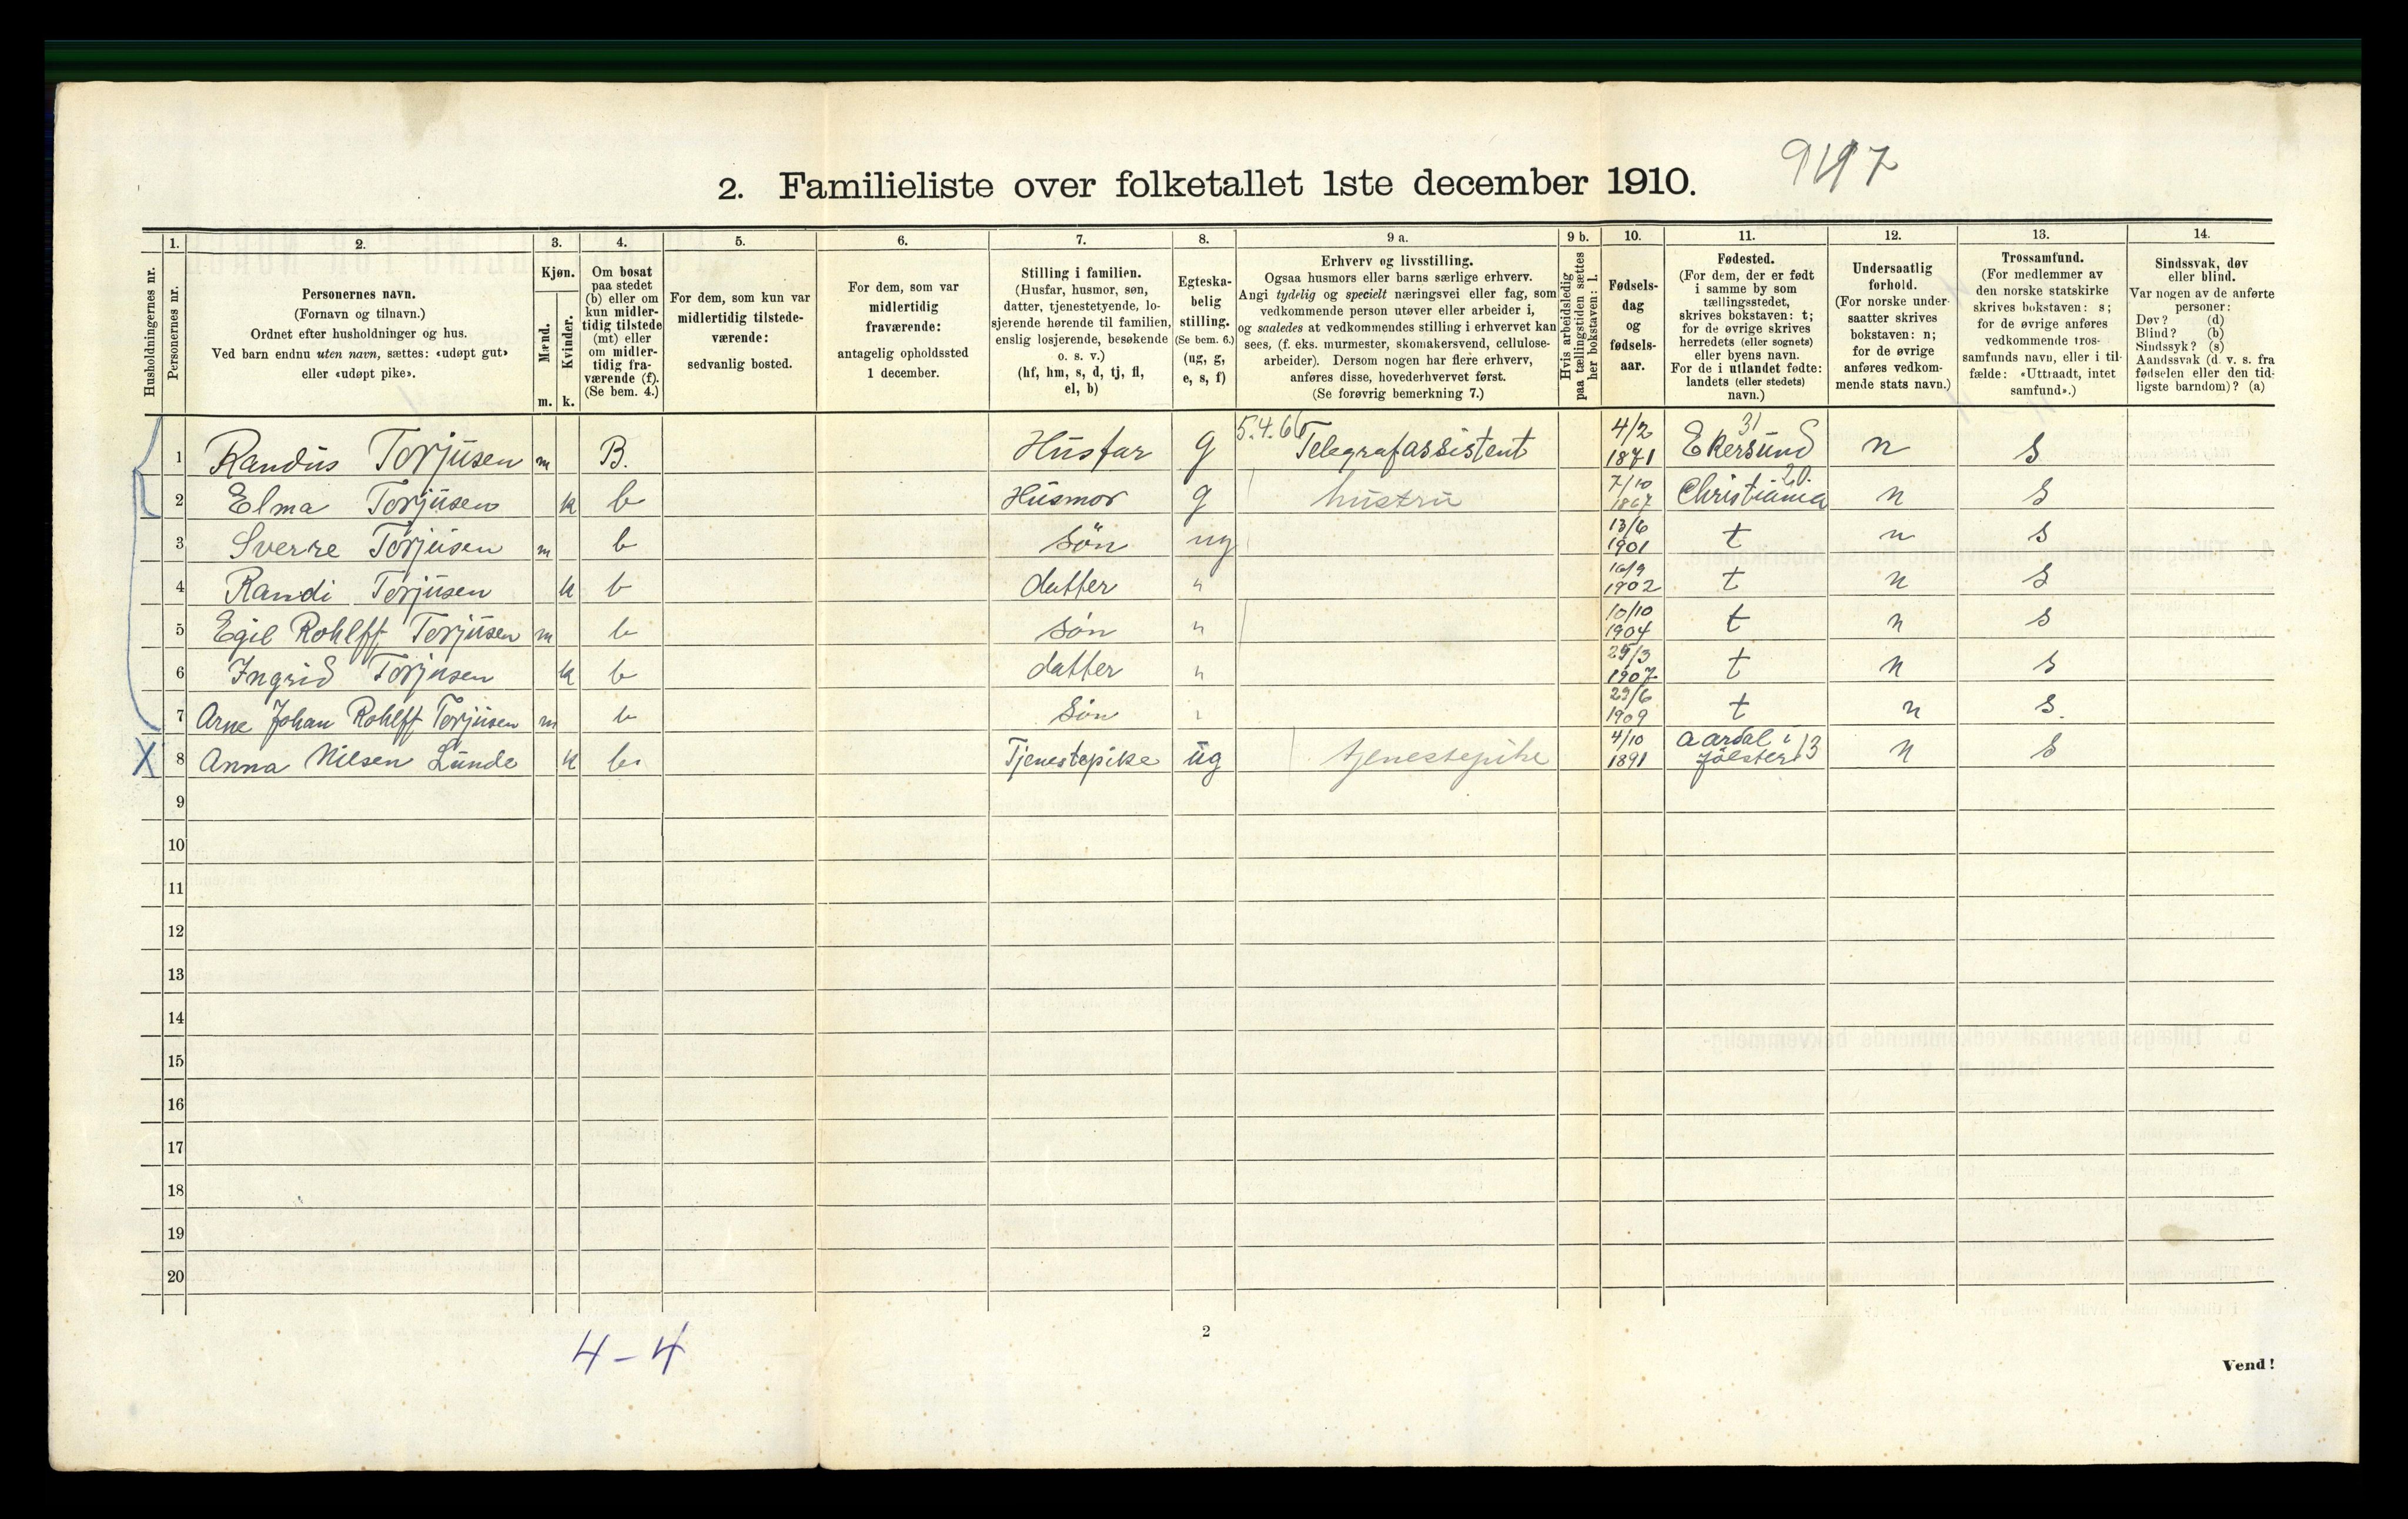 2. Familieliste over folketallet 1ste december 1910.
9197
Husholdningernes nr.
1.
Personernes nr.
2.
Personernes navn.
(Fornavn og tilnavn.)
Ordnet efter husholdninger og hus.
Ved barn endnu uten navn, sættes: «udøpt gut»
eller «udøpt pike».
3.
Kjøn.
Mænd.
Kvinder.
m. k.
4.
Om bosat
paa stedet
(b) eller om
kun midler-
tidig tilstede
(mt) eller
om midler-
tidig fra-
værende (f).
(Se bem. 4.)
5.
For dem, som kun var
midlertidig tilstede-
værende:
sedvanlig bosted.
6.
For dem, som var
midlertidig
fraværende:
antagelig opholdssted
1 december.
7.
Stilling i familien.
(Husfar, husmor, søn,
datter, tjenestetyende, lo-
sjerende hørende til familien,
enslig losjerende, besøkende
o. s. v.)
(hf, hm, s, d, tj, fl,
el, b)
8.
Egteska-
belig
stilling.
(Se bem. 6.)
(ug, g,
e, s, f)
9 a.
Erhverv og livsstilling.
Ogsaa husmors eller barns særlige erhverv.
Angi tydelig og specielt næringsvei eller fag, som
vedkommende person utøver eller arbeider i,
og saaledes at vedkommendes stilling i erhvervet kan
sees, (f. eks. murmester, skomakersvend, cellulose-
arbeider). Dersom nogen har flere erhverv,
anføres disse, hovederhvervet først.
(Se forøvrig bemerkning 7.)
9 b.
Hvis arbeidsledig
paa tællingstiden sættes
her bokstaven: l.
10.
Fødsels-
dag
og
fødsels-
aar.
11.
Fødested.
(For dem, der er født
i samme by som
tællingsstedet,
skrives bokstaven: t;
for de øvrige skrives
herredets (eller sognets)
eller byens navn.
For de i utlandet fødte:
landets (eller stedets)
navn.)
12.
Undersaatlig
forhold.
(For norske under-
saatter skrives
bokstaven: n;
for de øvrige
anføres vedkom-
mende stats navn.)
13.
Trossamfund.
(For medlemmer av
den norske statskirke
skrives bokstaven: s;
for de øvrige anføres
vedkommende tros-
samfunds navn, eller i til-
fælde: «Uttraadt, intet
samfund».)
14.
Sindssvak, døv
eller blind.
Var nogen av de anførte
personer:
Døv? (d)
Blind? (b)
Sindssyk? (s)
Aandssvak (d. v. s. fra
fødselen eller den tid-
ligste barndom)? (a)
1 Randus Torjusen m B. Husfar g 5.4.66 Telegrafassistent 4/2 1871 Ekersund 31 n s
2 Elma Torjusen k b Husmor g hustru 7/10 1867 Christiania 20. n s
3 Sverre Torjusen m b søn ug 13/6 1901 t n s
4 Randi Torjusen k b datter " 16/9 1902 t n s
5 Egil Rohlff Torjusen m b søn " 10/10 1904 t n s
6 Ingrid Torjusen k b datter " 25/3 1907 t n s
7 Arne Johan Rohlff Torjusen m b søn " 29/6 1909 t n s.
X 8 Anna Nilsen Lunde k b. Tjenestepike ug tjenestepike 4/10 1891 Aardal i Jölster 13 n s
9
10
11
12
13
14
15
16
17
18
19
20
4-4
2
Vend!